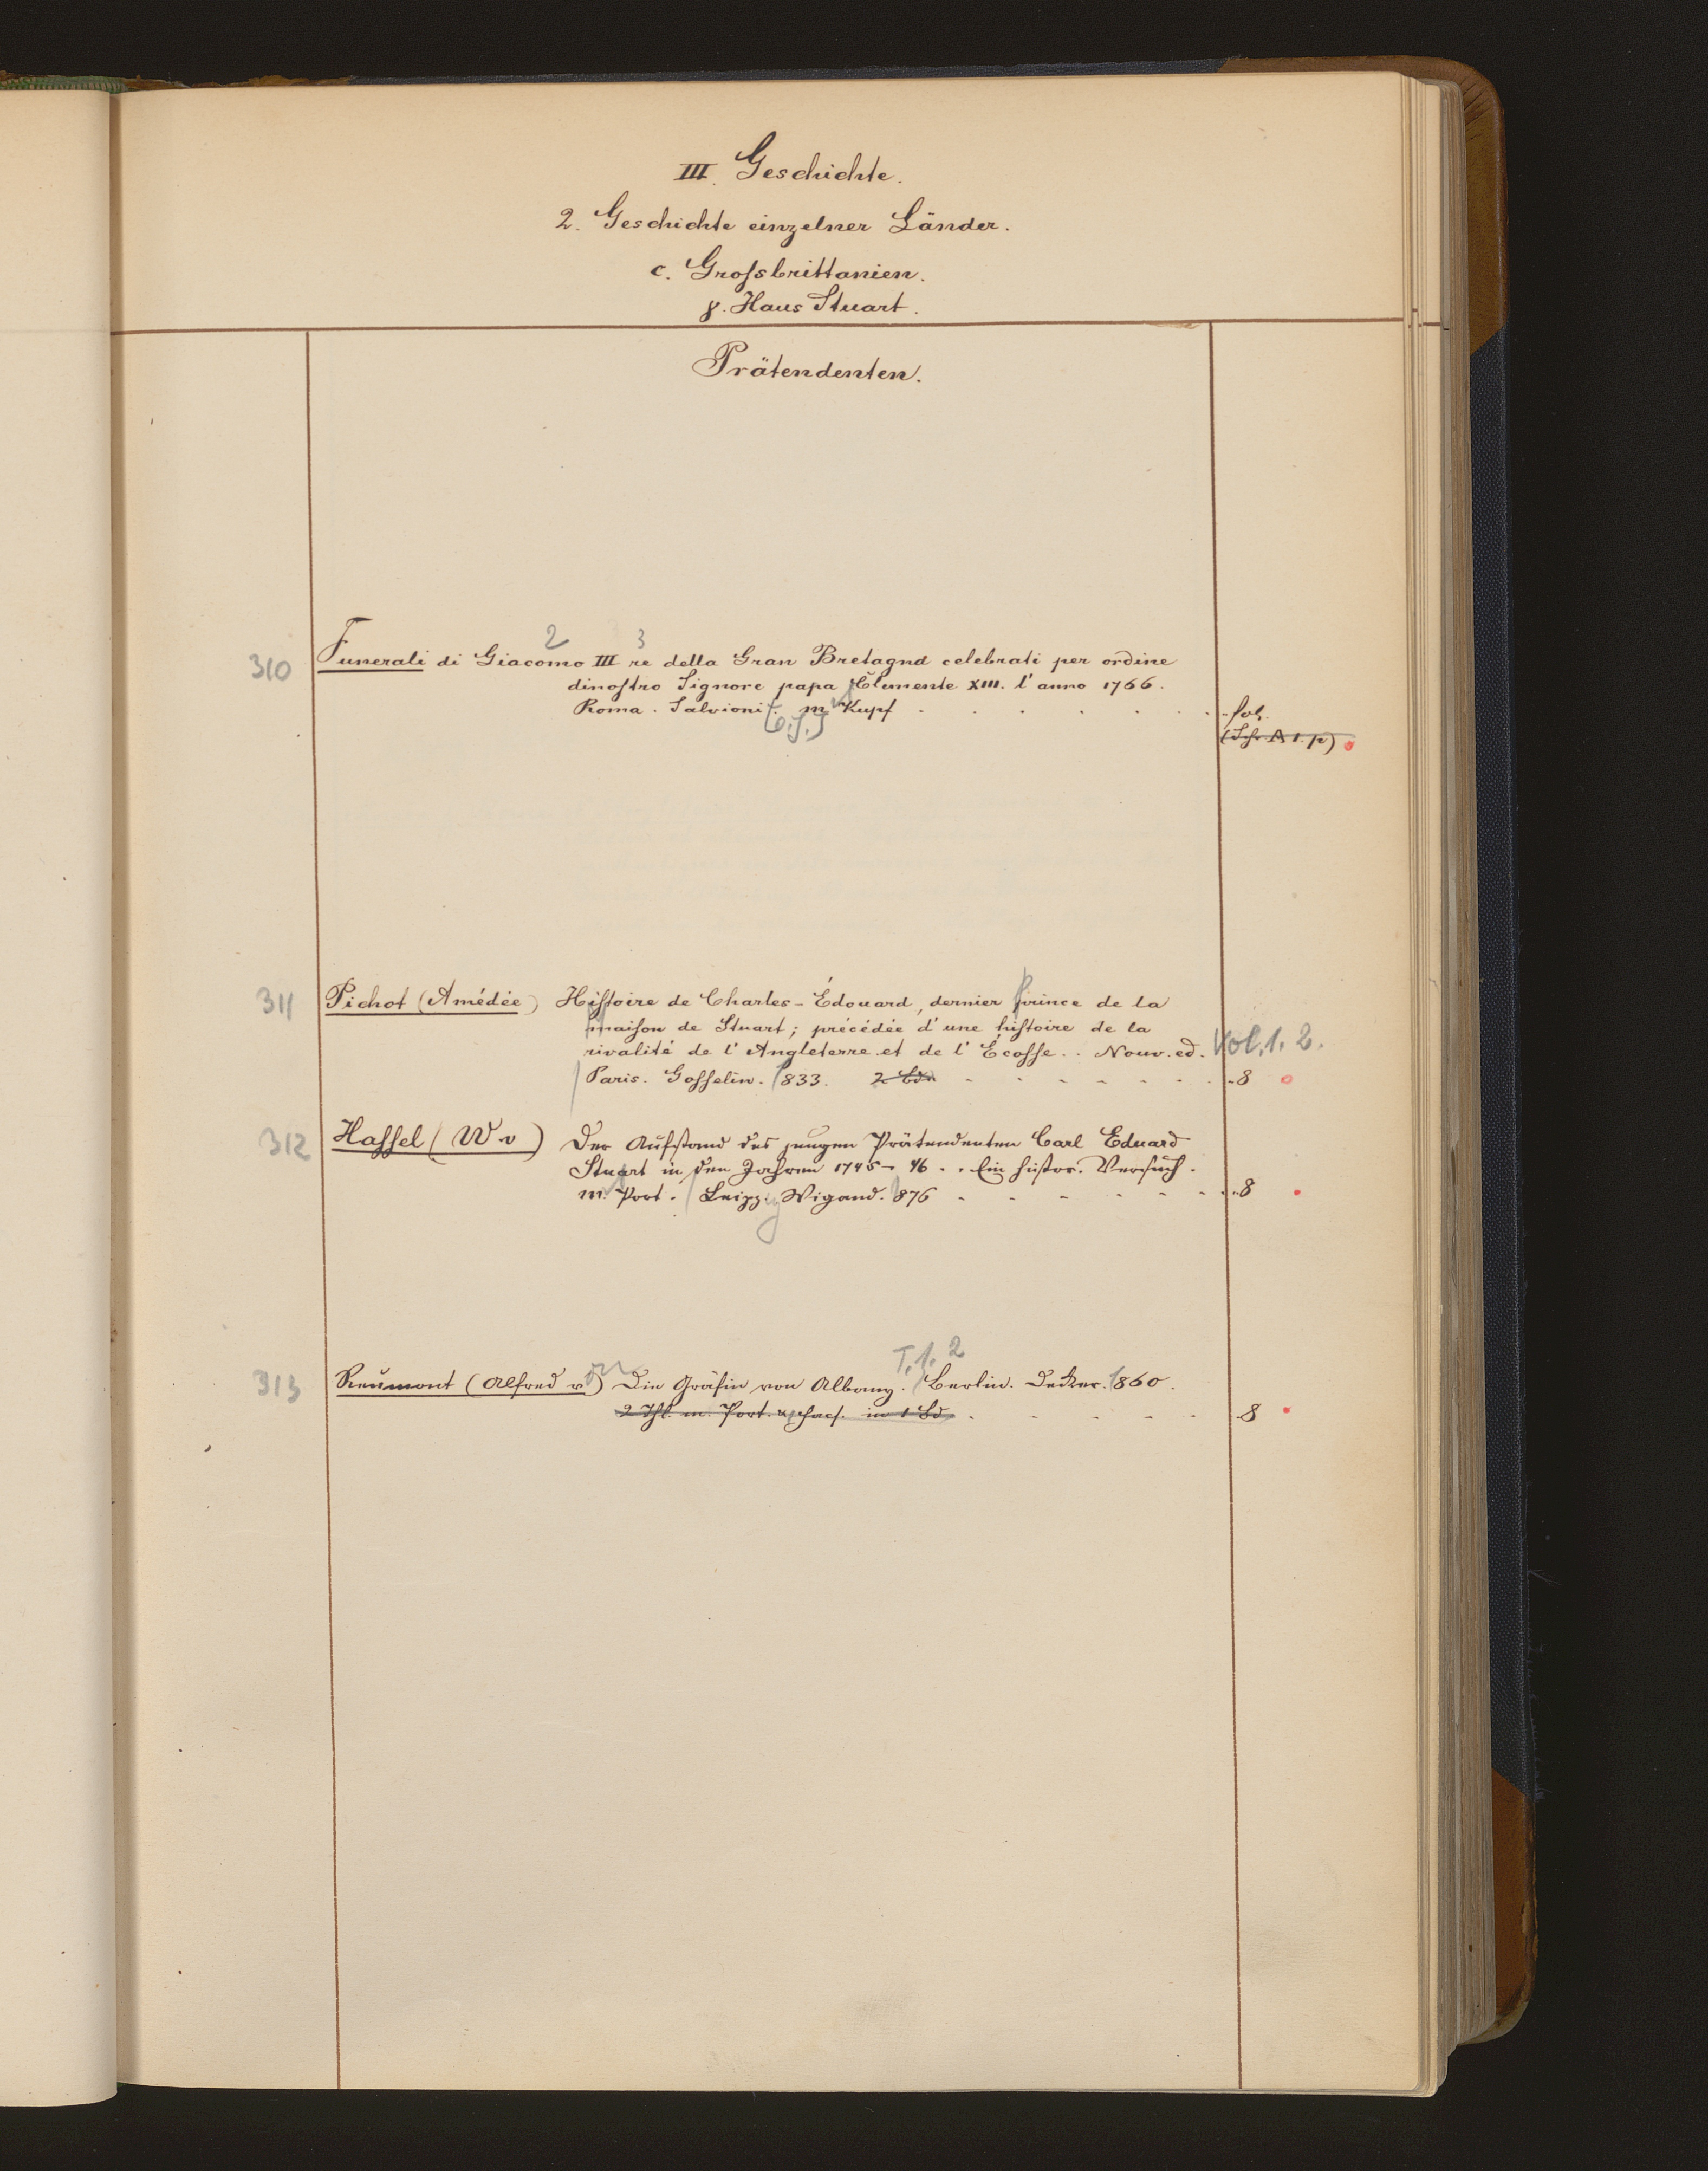 III. Geschichte.
2. Geschichte einzelner Länder.
c. Grofsbrittanien.
γ. Haus Stuart.
Prätendenten.
2 3
310 Funerali di Giacomo III re della Gran Bretagna celebrati per ordine
dinostro Signore papa Clemente XIII. l'anno 1766.
Roma. Salvioni. m Kupf fol.
(o.J.)
311 Pichot (Amédée) Histoire de Charles-Édouard, dernier prince de la
maison de Stuart; précédée d'une histoire de la
rivalité de l'Angleterre et de l'Écosse.. Nouv. ed. Vol. 1. 2.
Paris. Gosselin. 1833. 2 Bde 8
312 Hassel (W v) Der Aufstand des jungen Prätendenten Carl Eduard
Stuart in den Jahren 1745-46.. Ein histor. Versuch.
m. Port. Leipz. Wigand. 1876 8
T. 1. 2
313 Reumont (Alfred v) Die Gräfin von Albany. Berlin. Decker. 1860.
2 Thl. m. Port. u. Facs. in 1 Bd 8